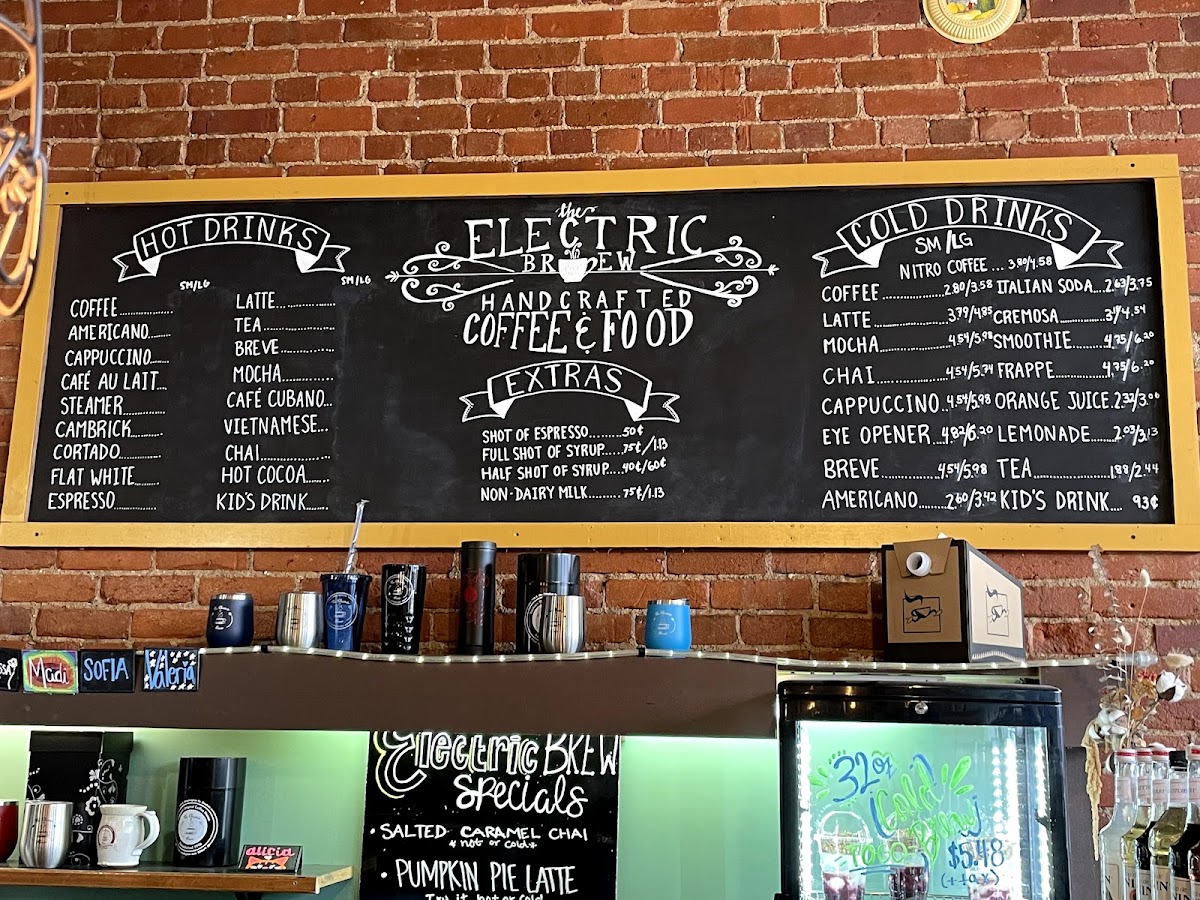 HOT DRINKS
SM/LG
COFFEE..............
AMERICANO.......
CAPPUCCINO......
CAFÉ AU LAIT....
STEAMER.............
CAMBRICK..........
CORTADO............
FLAT WHITE........
ESPRESSO............
SM/LG
LATTE...............
TEA....................
BREVE..............
MOCHA.............
CAFÉ CUBANO...
VIETNAMESE...
CHAI...................
HOT COCOA.......
KID'S DRINK.......
the
ELECTRIC
BREW
HANDCRAFTED
COFFEE & FOOD
EXTRAS
SHOT OF ESPRESSO.........50¢
FULL SHOT OF SYRUP.....75¢/1.13
HALF SHOT OF SYRUP....40¢/60¢
NON-DAIRY MILK.........75¢/1.13
COLD DRINKS
SM/LG
NITRO COFFEE... 3.80/4.58
COFFEE................2.80/3.58
LATTE..................3.79/4.85
MOCHA................4.54/5.98
CHAI..................4.54/5.74
CAPPUCCINO..4.54/5.98
EYE OPENER..4.82/6.20
BREVE............4.54/5.98
AMERICANO.......2.60/3.42
ITALIAN SODA...2.63/3.75
CREMOSA............./4.54
SMOOTHIE.........4.75/6.20
FRAPPE.............4.75/6.20
ORANGE JUICE.2.32/3.00
LEMONADE.......2.03/3.13
TEA..................1.88/2.44
KID'S DRINK.... 93¢
Madi
SOFIA
Valeria
Electric BREW
Specials
• SALTED CARAMEL CHAI
* hot or cold *
• PUMPKIN PIE LATTE
Try it hot or cold
alicia
32oz
Cold
Brew
TOGO
$5.48
(+tax)